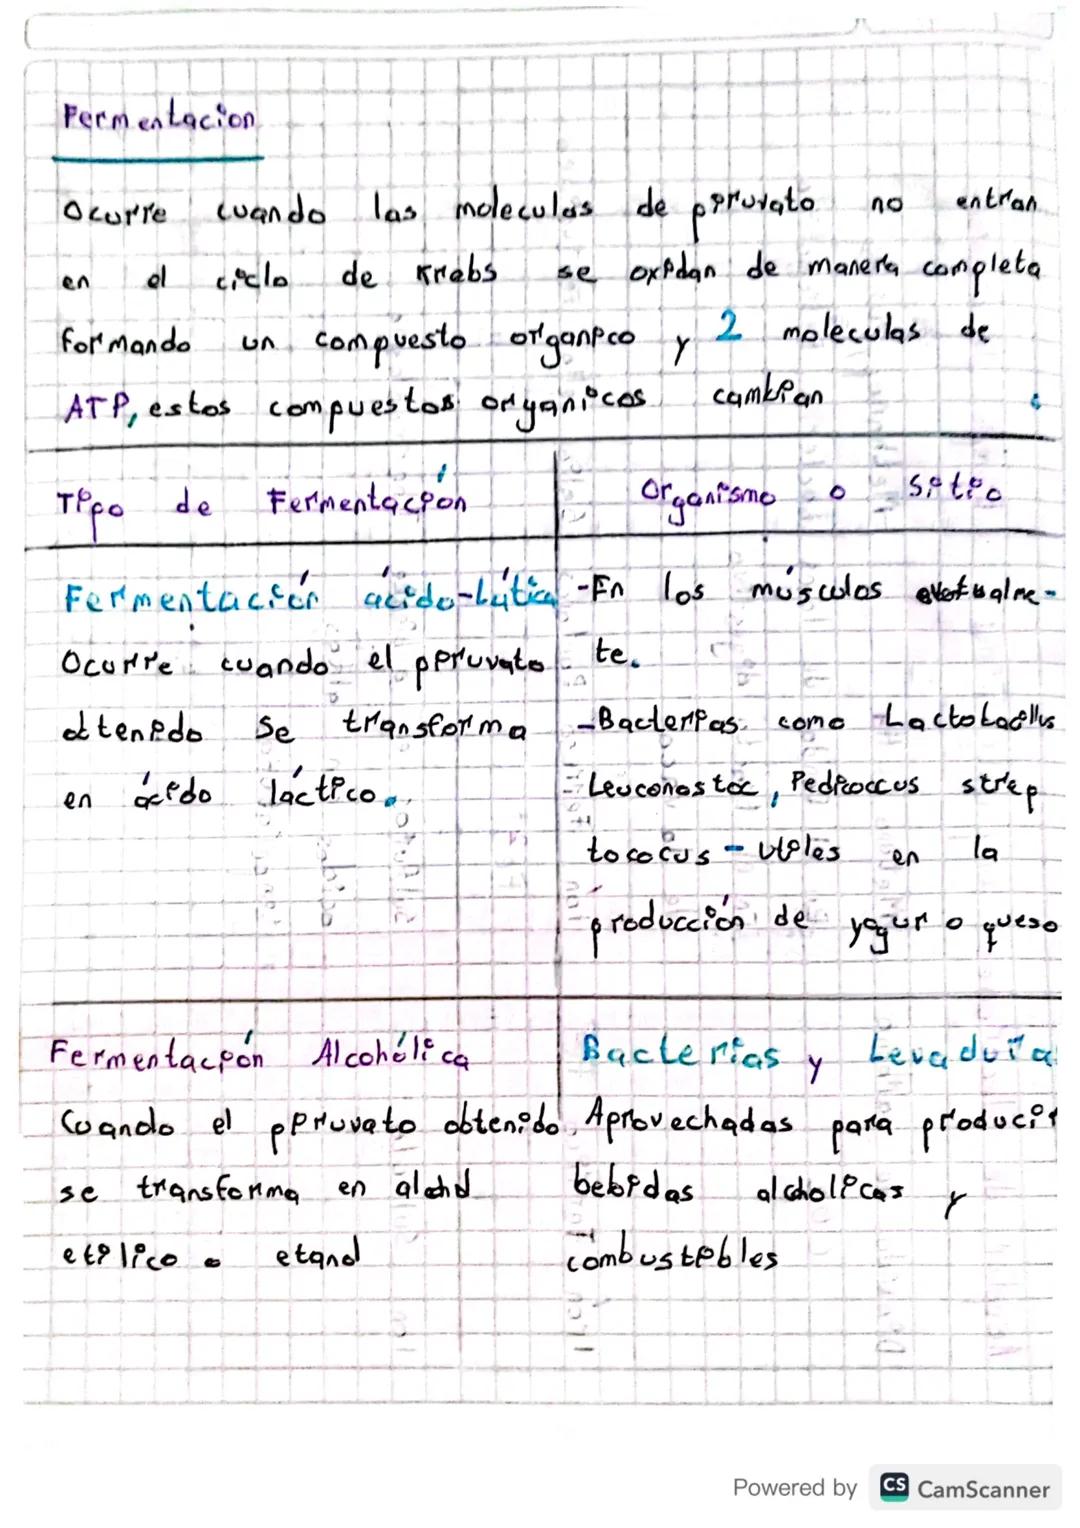 Fermentacion
Ocurre cuando las moleculas de piruvato no entran
en el ciclo de Krebs se oxidan de manera completa
formando un compuesto organico y 2 moleculas de
ATP, estos compuestos organicos cambian
Tipo de Fermentación
Organismo o Sitio
Fermentación ácido-Lática
Ocurre cuando el piruvato
obtenido se transforma
en ácido láctico.
-En los músculos eventualme-
te.
-Bacterias como Lactobacillus
Leuconostoc, Pediococcus strep
tococus - utiles en la
producción de yogur o queso
Fermentación Alcohólica
Cuando el piruvato obtenido
se transforma en alcohol
etilico o etanol
Bacterias y Levadura
Aprovechadas para producir
bebidas alcholicas y
combustibles
Powered by CS CamScanner